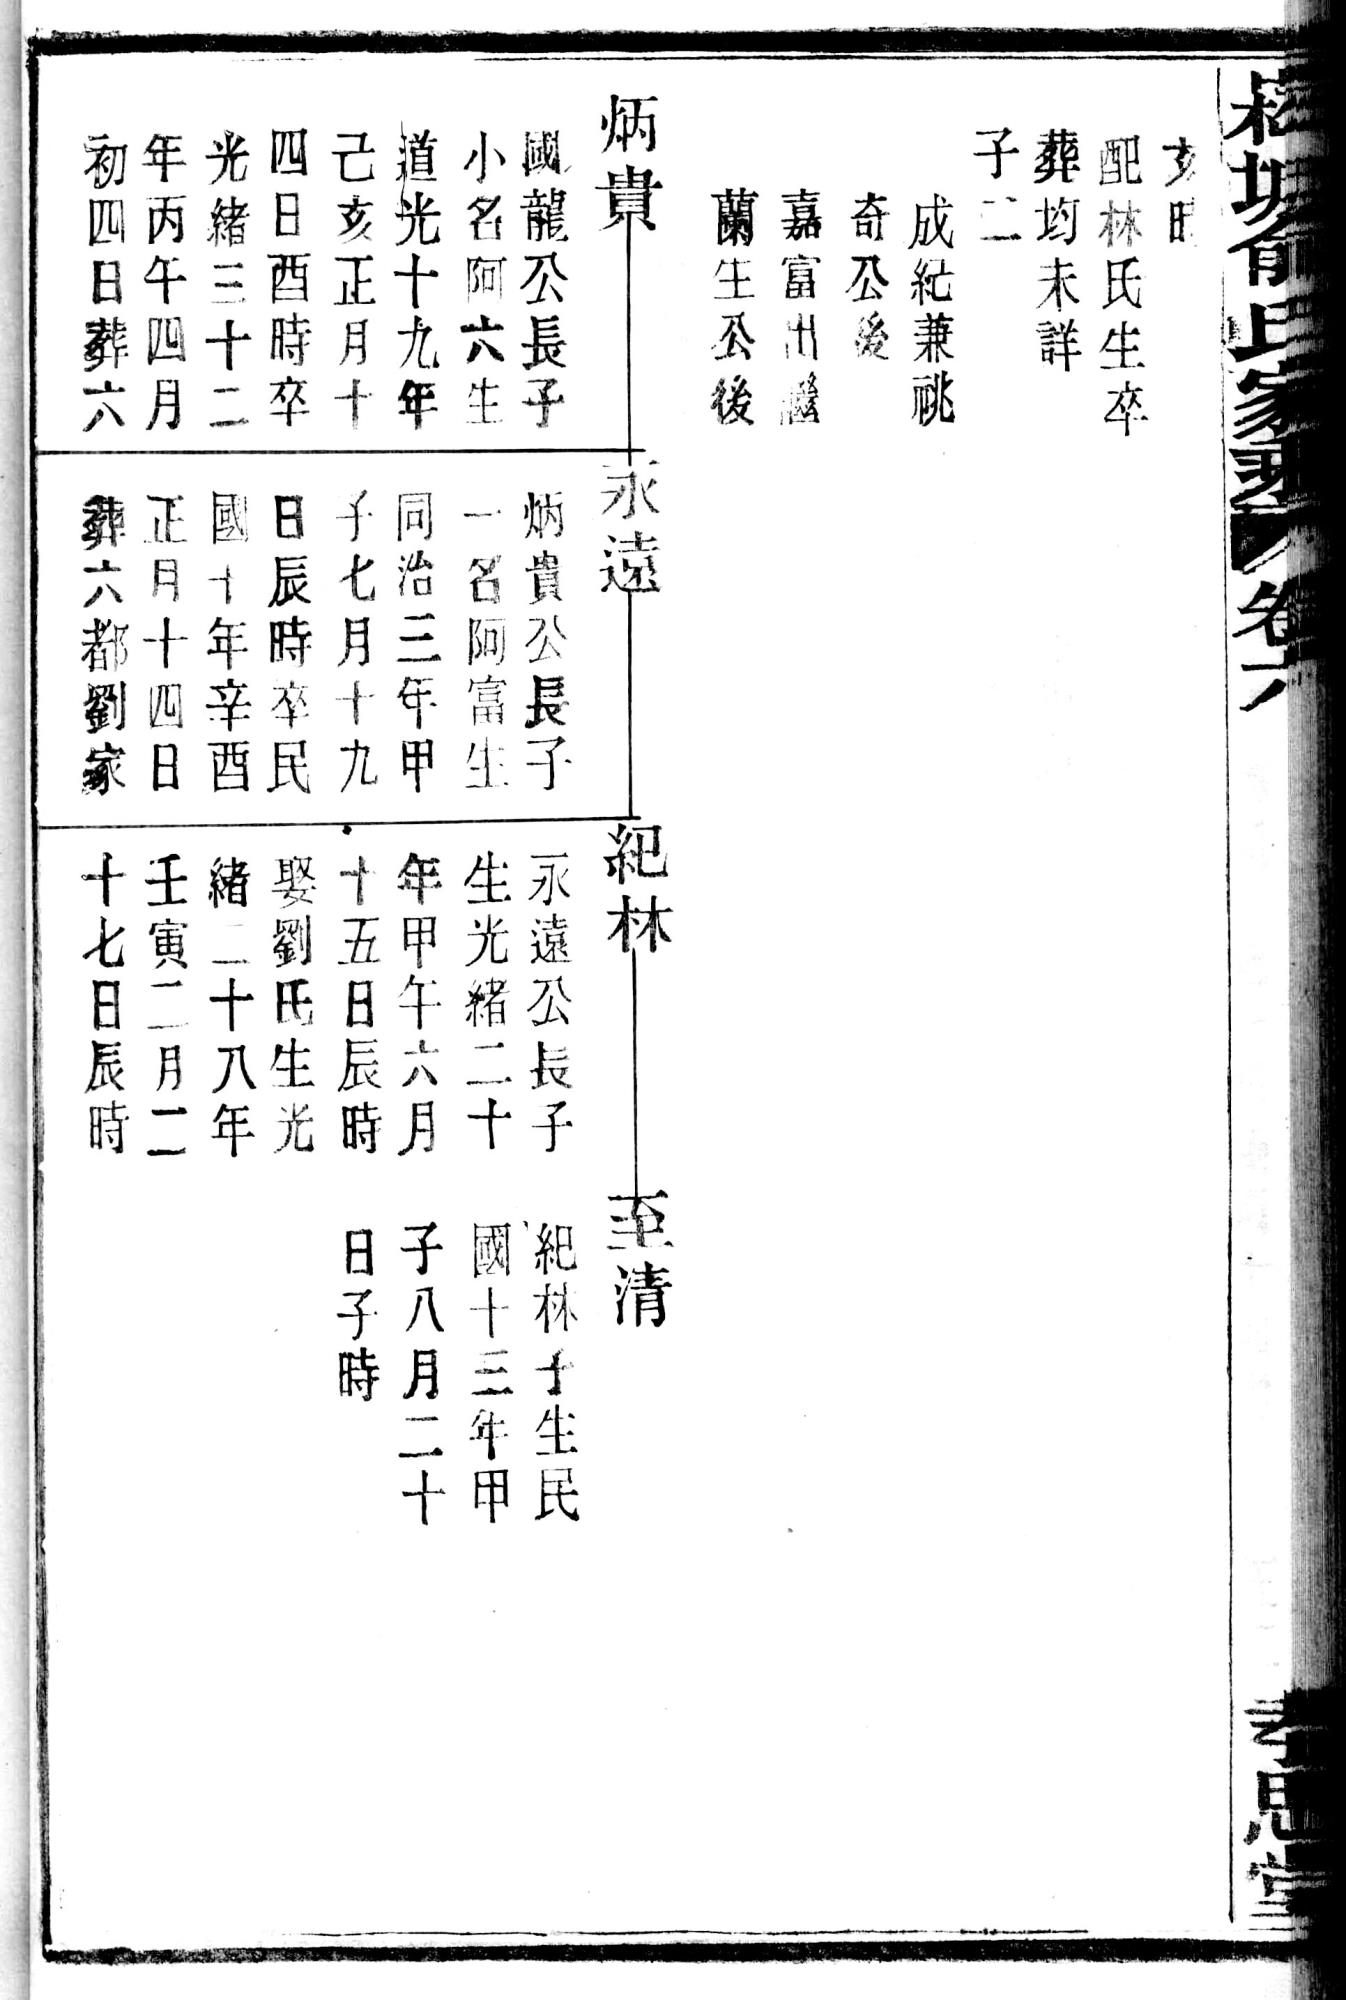 俞氏家乘 卷六
孝思堂
亥時
配林氏生卒
葬均未詳
子二
成紀兼祧
奇公後
嘉富出繼
蘭生公後
炳貴
國龍公長子
小名阿六生
道光十九年
己亥正月十
四日酉時卒
光緒三十二
年丙午四月
初四日葬六
永遠
炳貴公長子
一名阿富生
同治三年甲
子七月十九
日辰時卒民
國十年辛酉
正月十四日
葬六都劉家
紀林
永遠公長子
生光緒二十
年甲午六月
十五日辰時
娶劉氏生光
緒二十八年
壬寅二月二
十七日辰時
至清
紀林子生民
國十三年甲
子八月二十
日子時